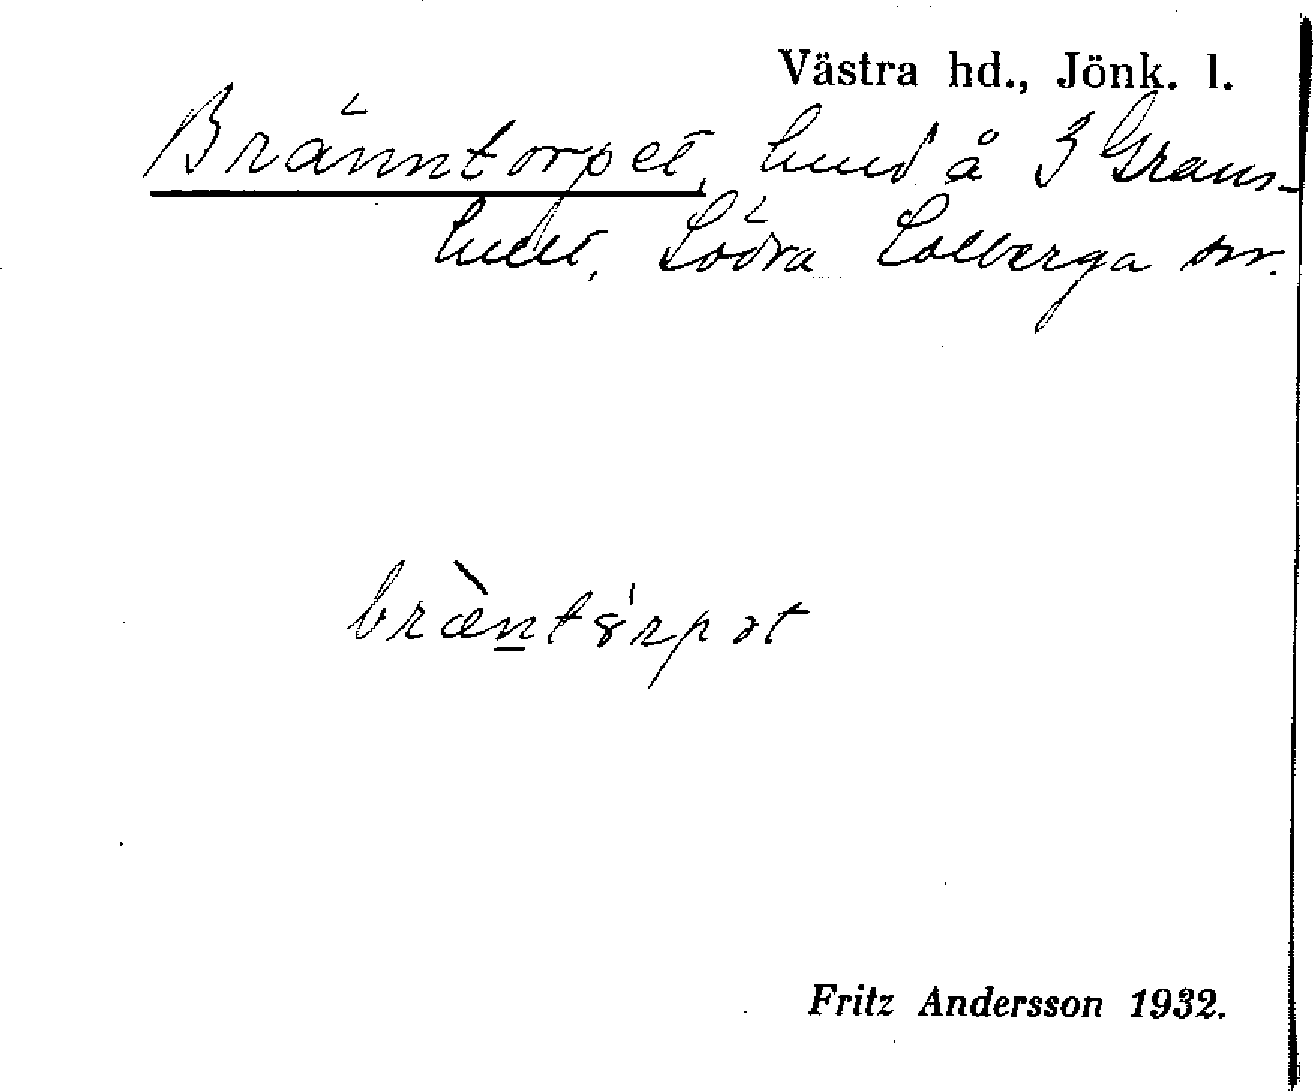 Västra hd., Jönk. l.
Bränntorpet, hmd å 3 Grans-
hult, Södra Solberga sn.
bræ̀nt8rpət
Fritz Andersson 1932.